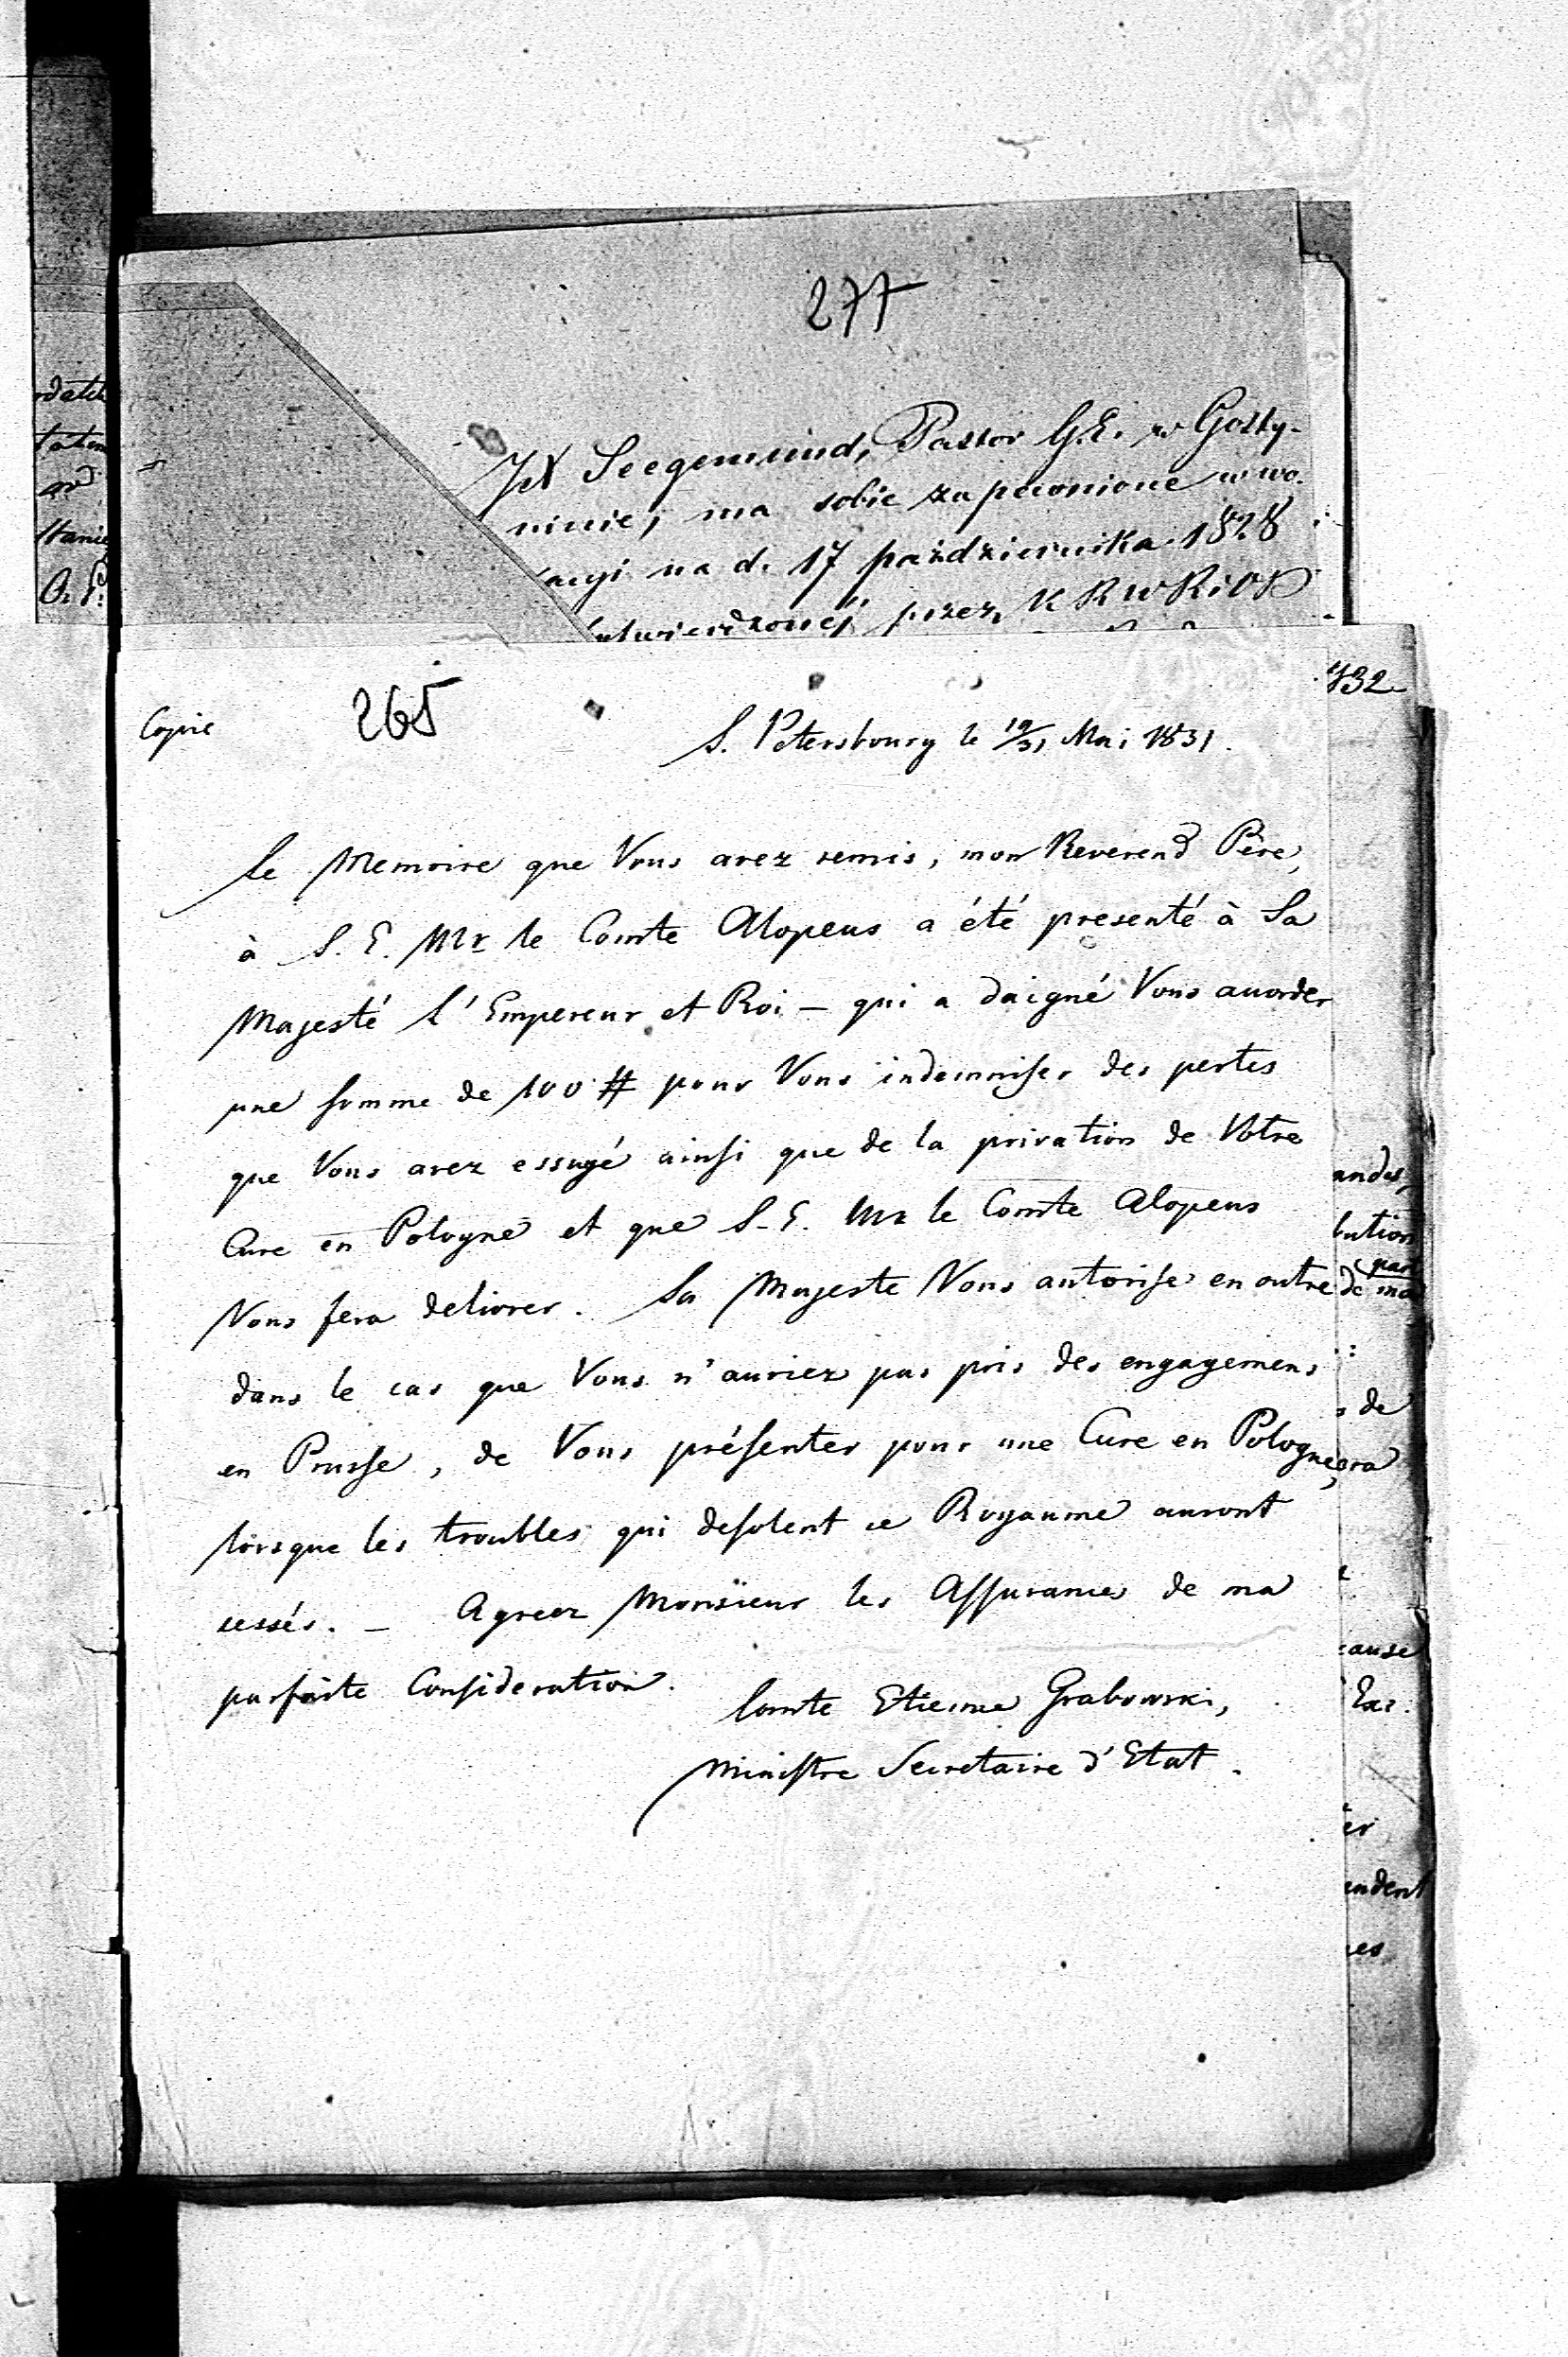 277
JX Seegemund, Pastor G.E. w Gosty-
ninie, ma sobie zapewnione w wo-
kacyi na d. 17 października 1828
potwierdzonéj przez KRWRiOP
265
Copie
S. Petersbourg le 19/31 Mai 1831.
Le Memoire que Vous avez remis, mon Reverend Père,
à S. E. Mr le Comte Alopeus a été presenté à Sa
Majesté l'Empereur et Roi – qui a daigné Vous accorder
une somme de 100 # pour Vous indemniser des pertes
que Vous avez essuyé ainsi que de la privation de Votre
Cure en Pologne et que S. E. Mr le Comte Alopeus
Vous fera delivrer. Sa Majeste Vous autorise en outre
dans le cas que Vous n'auriez pas pris des engagemens
en Prusse, de Vous présenter pour une Cure en Pologne,
lorsque les troubles qui desolent ce Royaume auront
cessés. – Agreez Monsieur les Assurances de ma
parfaite Consideration.
Comte Etienne Grabowski,
Ministre Secretaire d'Etat.
732
andes,
bution
part
de ma
s de
era
cause
Exc.
er
endent
es